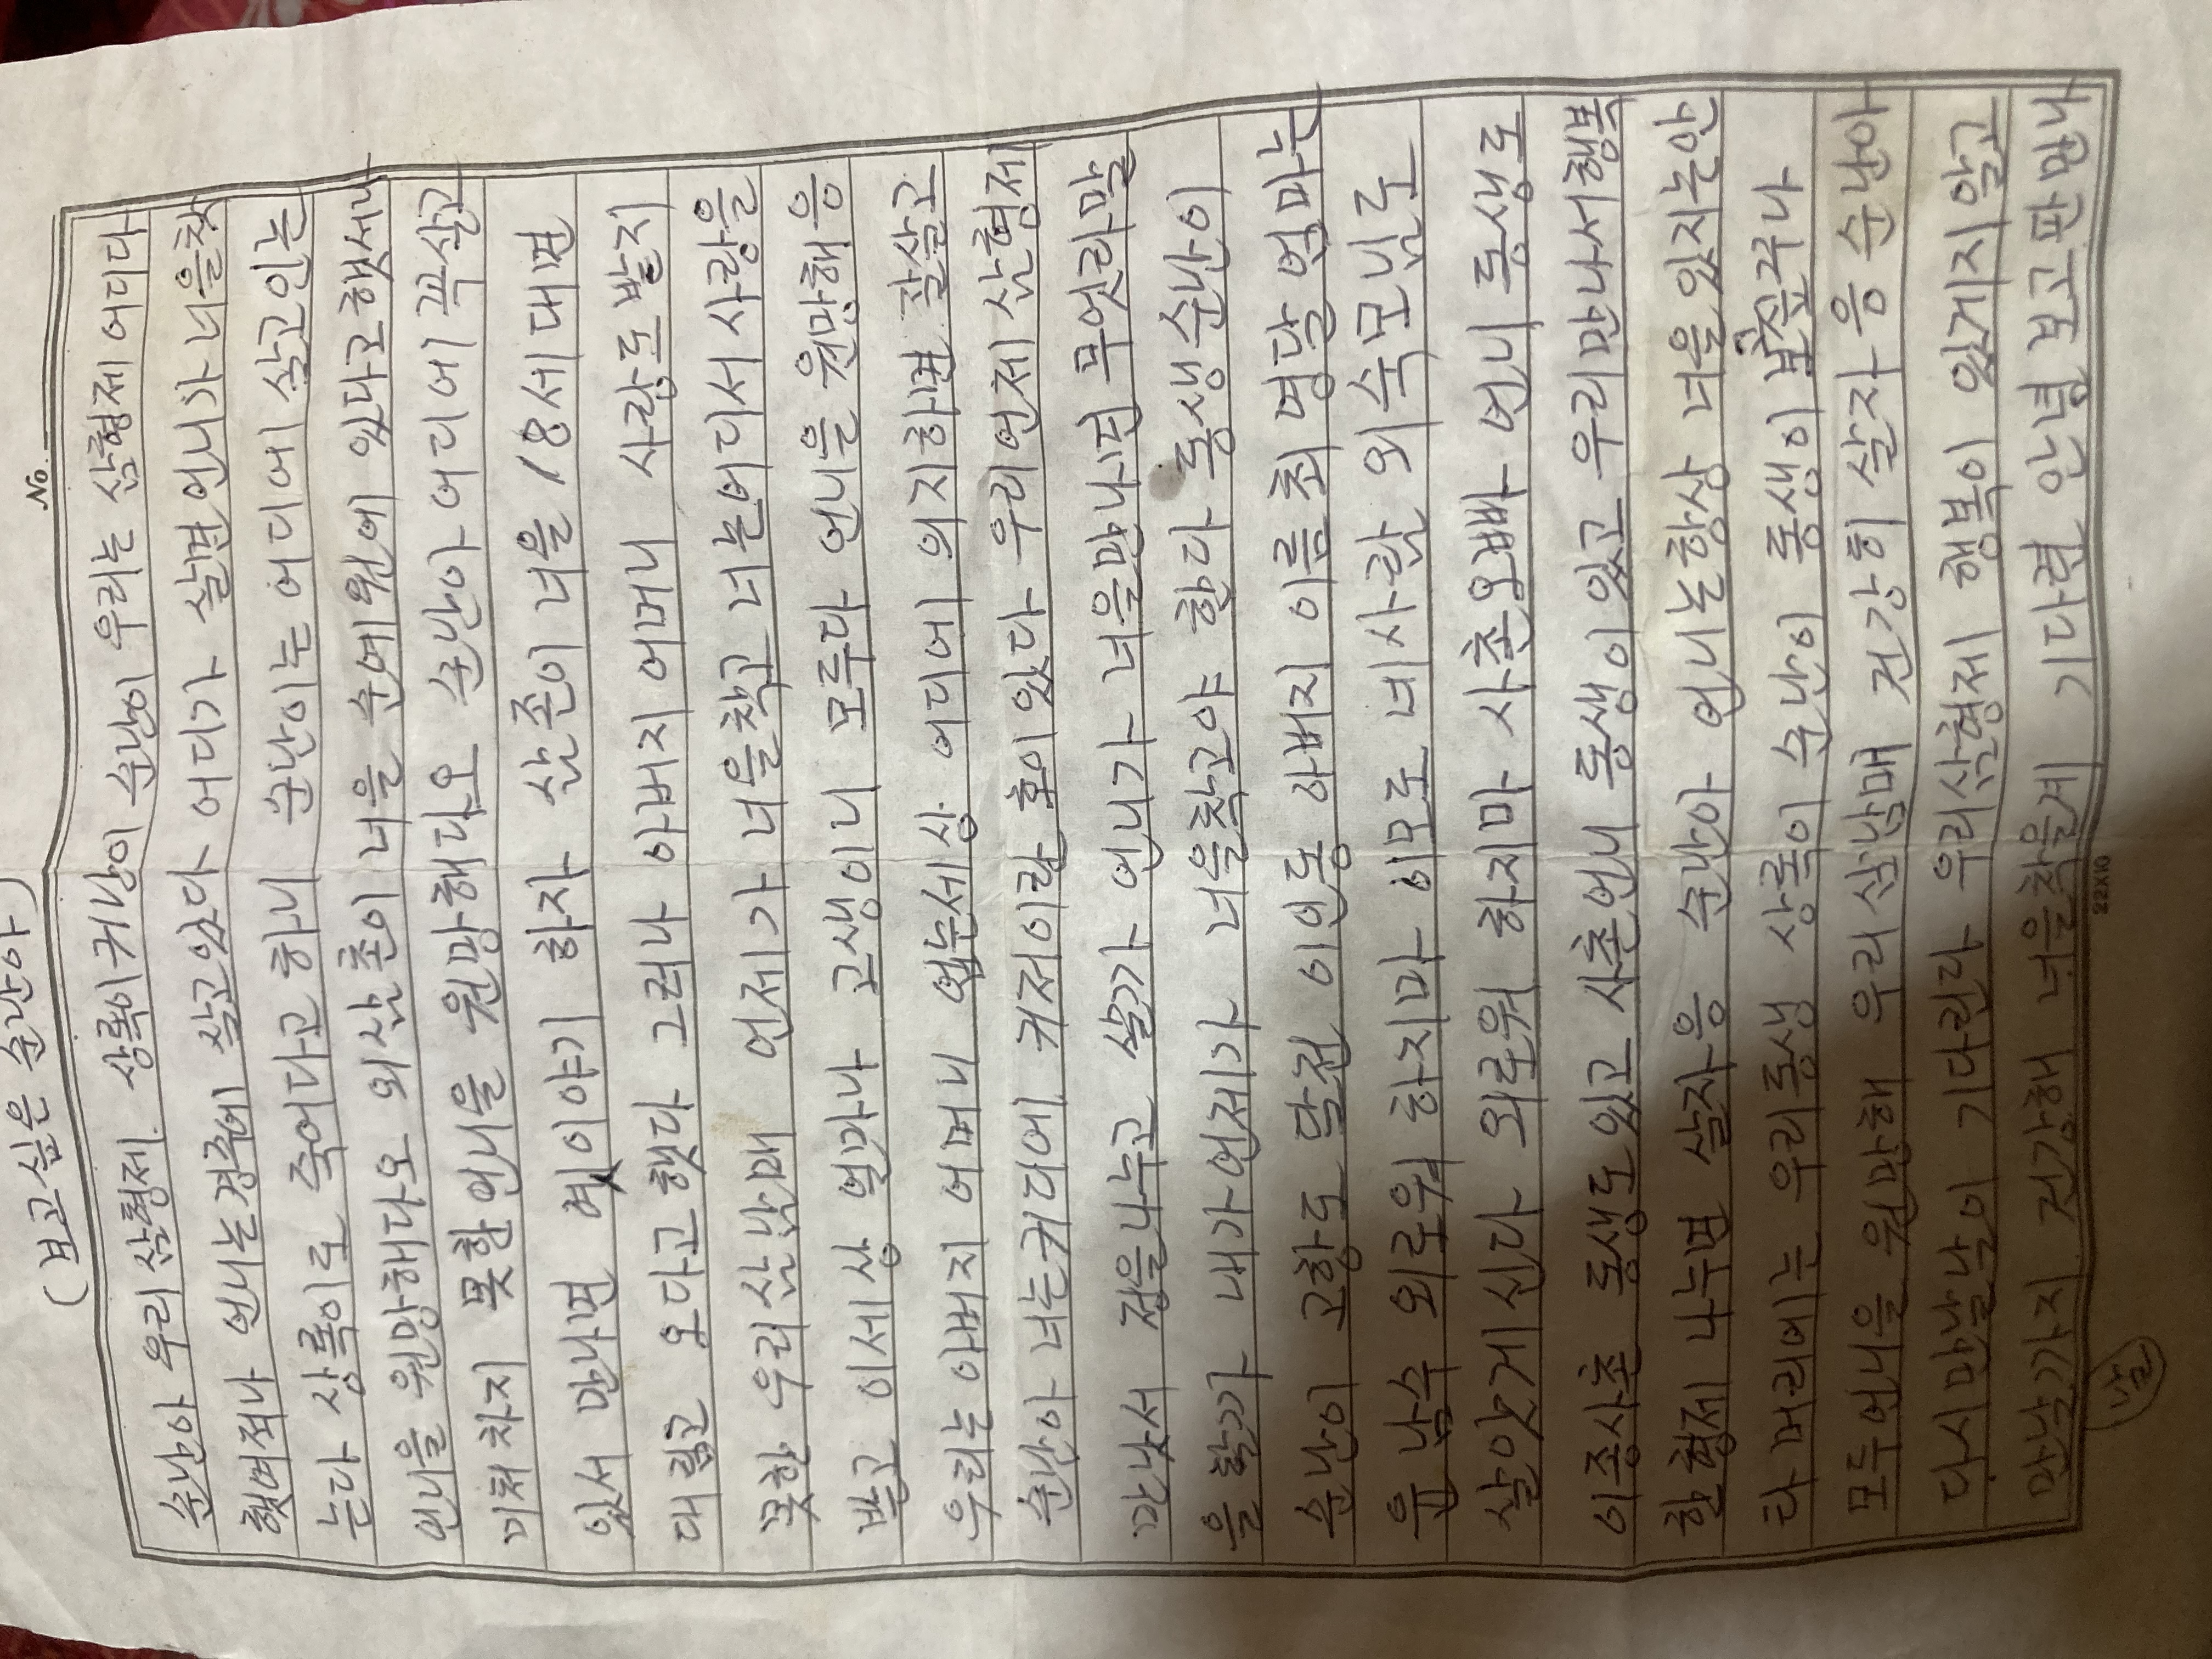 No.
(보고싶은 순난아)
순난아 우리 삼형제 상록이 귀남이 순남이 우리는 삼형제 어디다
했며젹나 언니는 경주에 살고있다 어디가 살면 언니가 너을찾
는다 상록이로 죽어다고 하니 순난이는 어디에 살고인는
언니을 원망해다오 외삼촌이 너을 순에원에 있다고 햇서니
미처 차지 못한 언니을 원망해다오 순난아 어디에 꼭살고
있서 만나면 옛이야기 하자 삼존이 너을 18세 대면
대릴고 오다고 햇다 그러나 아버지 어머니 사랑도 발지
못한 우리 삼남매 언제가 너을착고 너는어디서 사랑을
발고 이세상 얼마나 고생이니 모루다 언니을 원망해 응
우리는 아버지 어머니 업는세상 어디에 의지하면 잘살고
순난아 너는커다에 커저이란 호이있다 우리 언제 삼형제
만낫서 정을나누고 살가 언니가 너을만나면 무엇라말
을 할가 내가 언제가 너을착고야 한다 동생 순난이
순난이 고향도 달전 이인동 아버지 이름 최 명달 엄마는
윤 남수 외로워 하지마 이모도 너사람 외숙모님도
살앗게신다 외로워 하지마 사촌오빠 언니 동생도
이종사촌 동생도있고 사촌언니 동생이있고 우리만나서행복
한형제 나누면 살자응 순난아 언니는항상 너을있지는안
타 머리에는 우리동생 상록이 순난이 동생이 보고싶구나
모두언니을 원망해 우리삼남매 건강히 살자 응 순난아
다시만날날이 기다린다 우리삼형제 행복이 있게지 알고
만날가지 건강해 너을착을게 기다려 안녕 보고판 만나
22X10
(날)